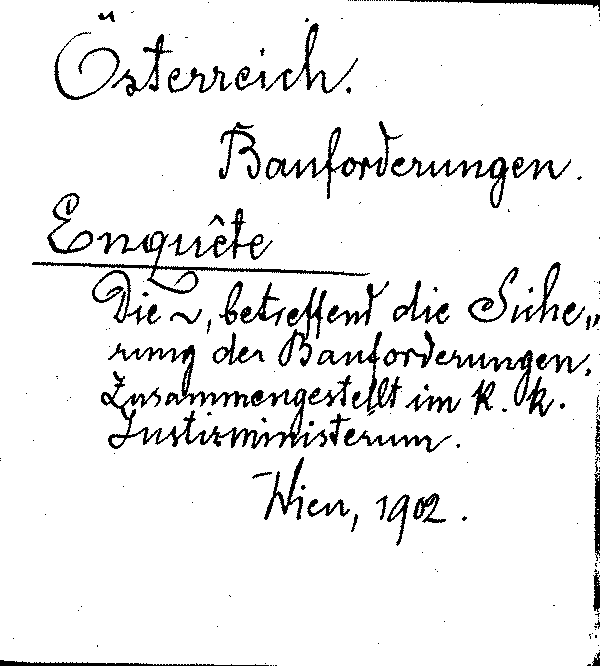 Österreich.
Bauforderungen.
Enquête
Die ~, betreffend die Siche„
rung der Bauforderungen.
Zusammengestellt im k. k.
Justizministerum.
Wien, 1902.